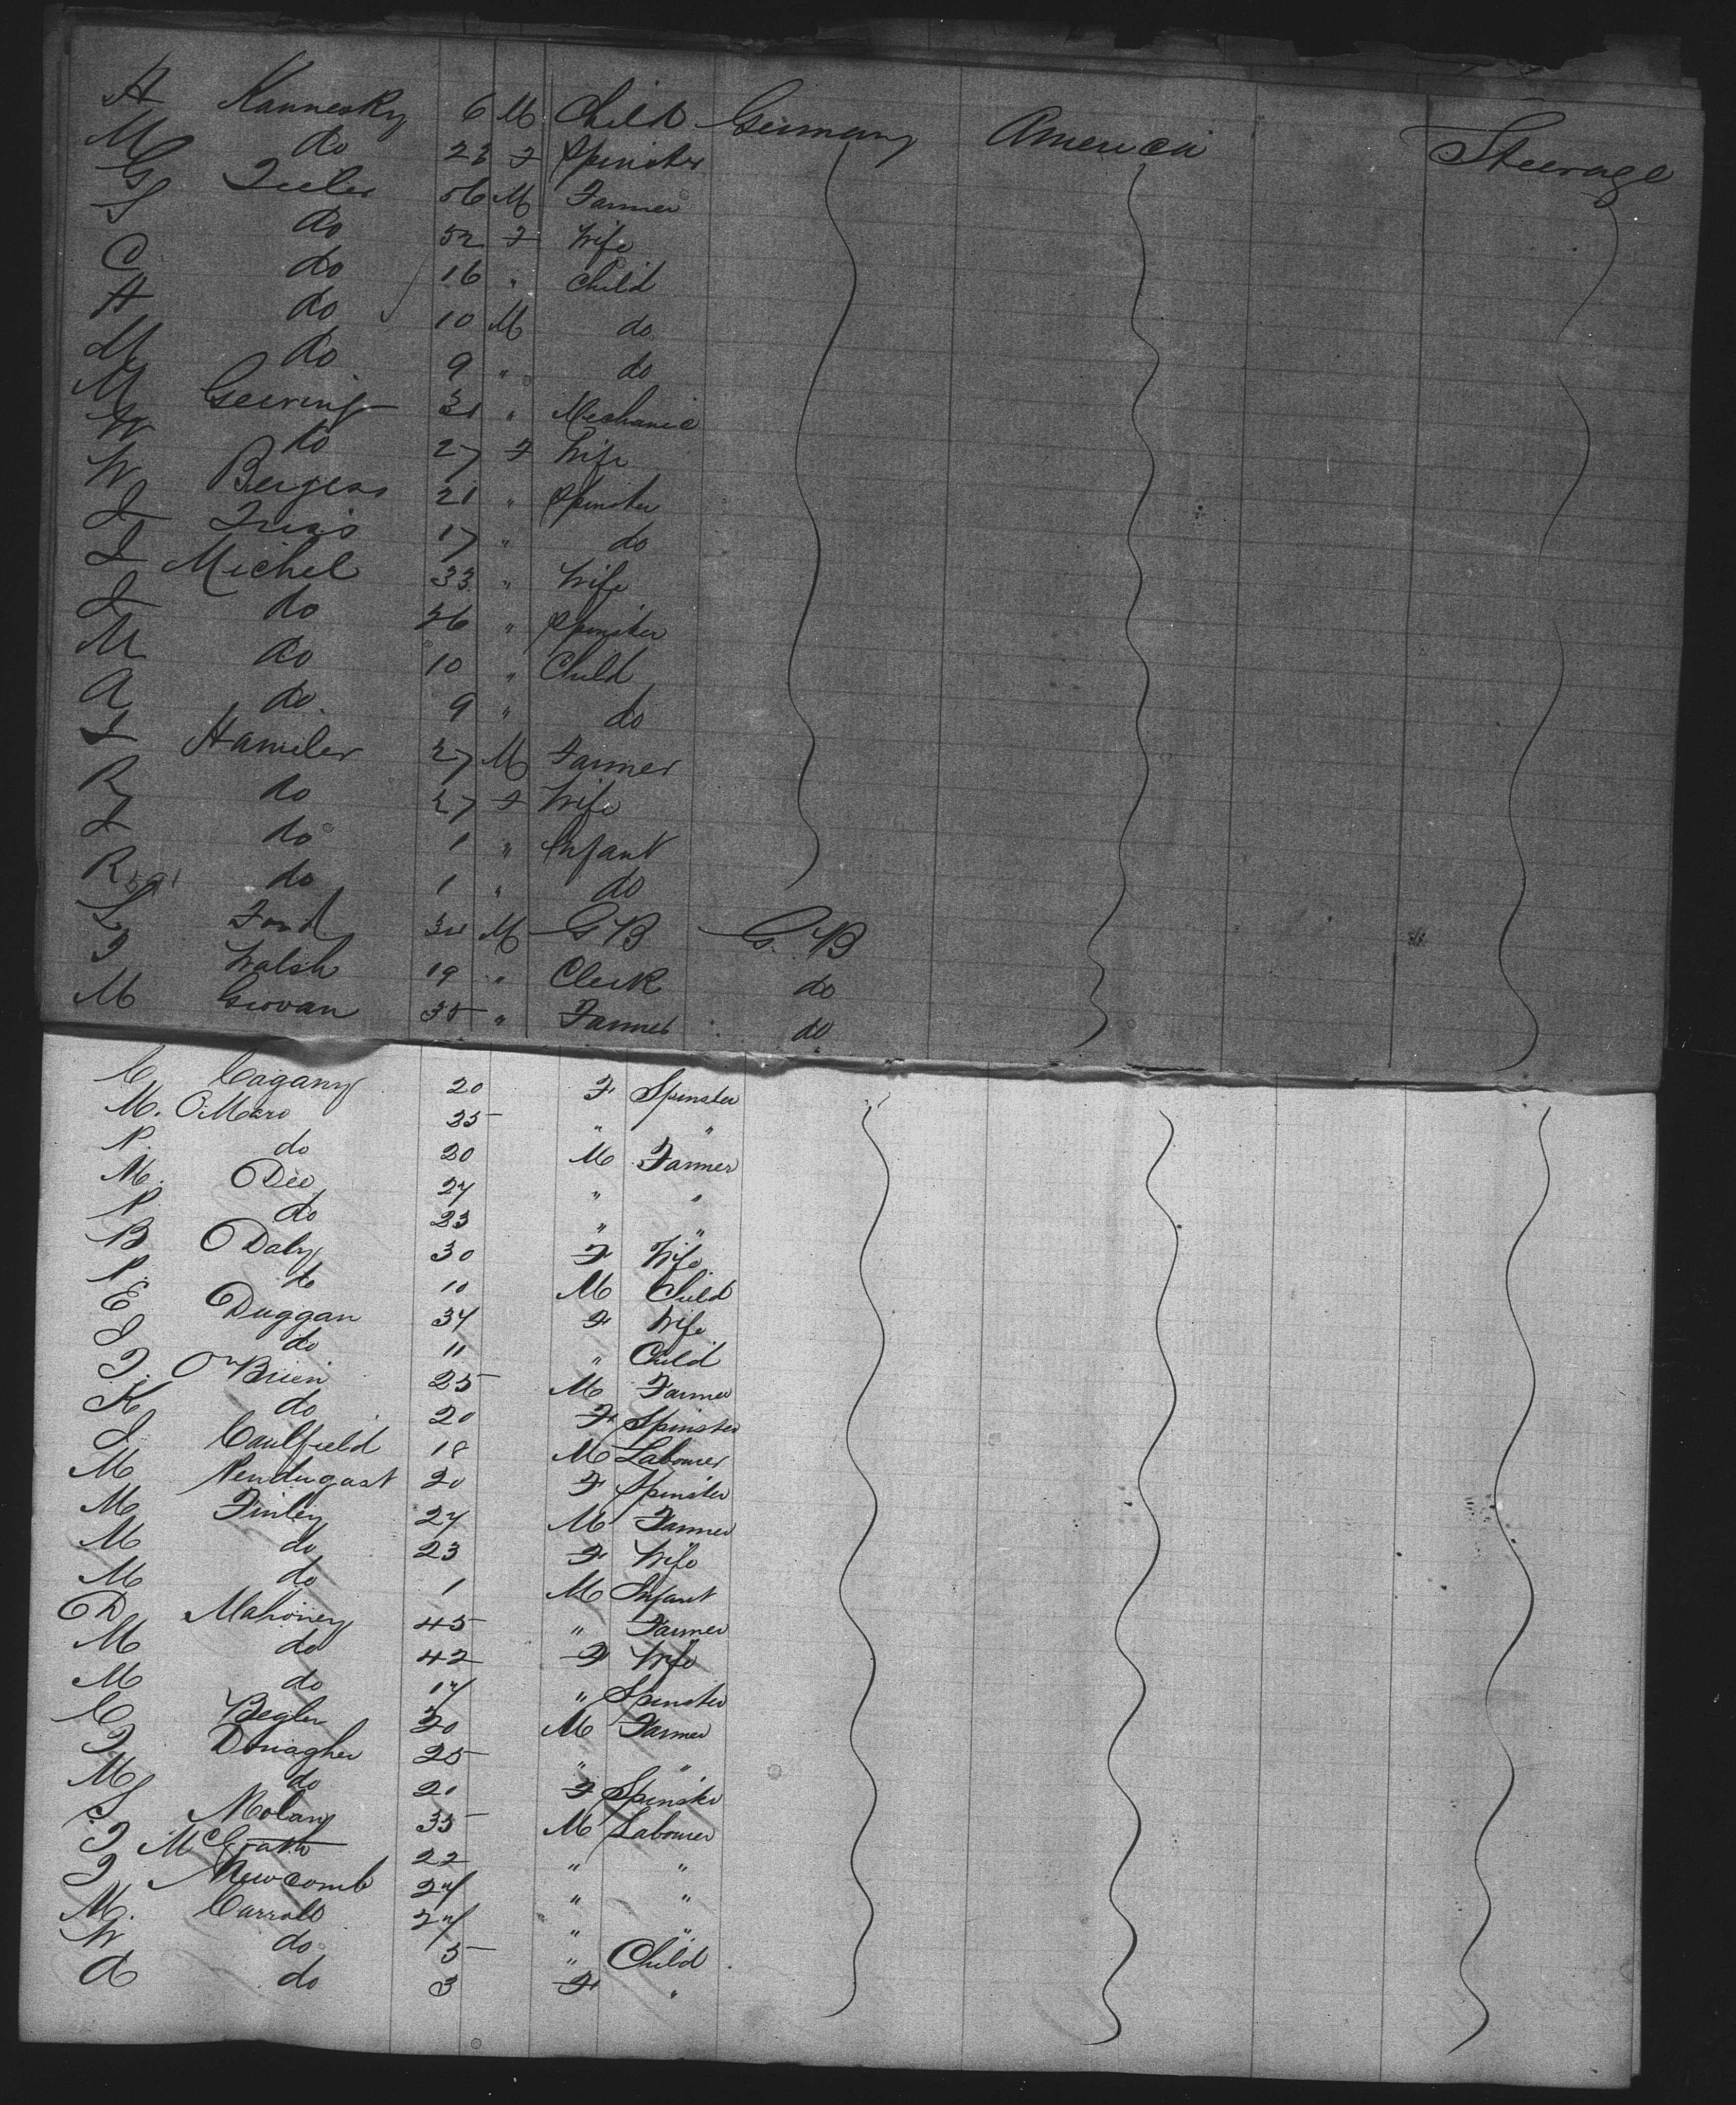 H Kannesky 6 M Child Germany America Steerage
M do 23 F Spinster
G Zeeler 56 M Farmer
S do 52 F Wife
C do 16 " Child
H do 10 M do
M do 9 " do
M Geering 31 " Mechanic
W do 27 F Wife
W Berges 21 " Spinster
L 17 " do
L Michel 33 " Wife
L do 26 " Spinster
M do 10 " Child
A do 9 " do
L Hamiler 27 M Farmer
R do 27 F Wife
L do 1 " Infant
R do 1 " do
L Ford 34 M GB G. B
J Walsh 19 " Clerk do
M Giovan 35 " Farmer do
C Cagany 20 F Spinster
M. O'Maro 25 " "
P. do 20 M Farmer
M. Dee 27 " "
P. do 23 " "
B O Daly 30 F Wife
P. do 10 M Child
E Duggan 34 F Wife
J do 11 " Child
J. O'Brien 25 M Farmer
K do 20 F Spinster
J Caulfield 18 M Labourer
M Pendugast 20 F Spinster
M Finley 27 M Farmer
M do 23 F Wife
M do 1 M Infant
D Mahoney 45 " Farmer
M do 42 F Wife
M do 17 " Spinster
C Begler 20 M Farmer
J Donagher 25 " "
M do 20 F Spinster
J Molany 35 M Labourer
J McGrath 22 " "
J Newcomb 24 " "
M. Carroll 24 " "
W do 5 " Child
A do 3 F "